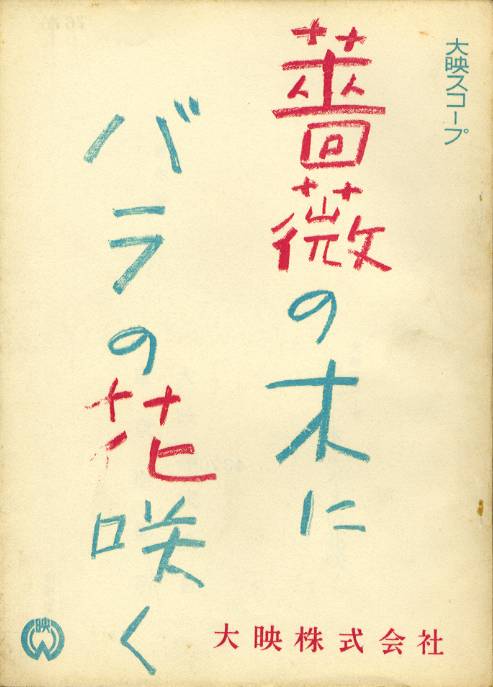 大映スコープ
薔薇の木に
バラの花咲く
大映株式会社
映